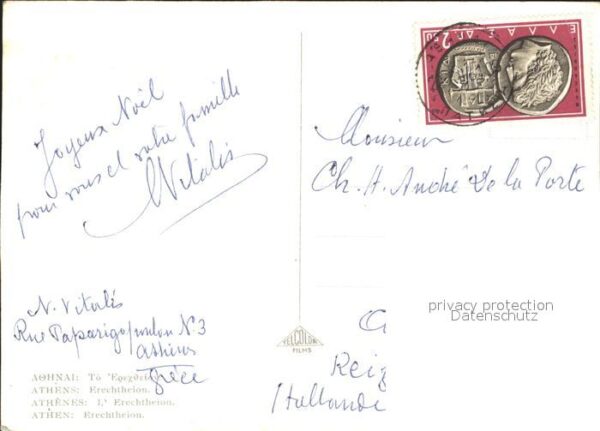 Joyeux Noël
pour vous et votre famille
N Vitalis
N. Vitalis
Rue Paparigopoulou N° 3
Athènes
Grèce
ΑΘΗΝΑΙ: Τὸ Ἐρεχθεῖον
ATHENS: Erechtheion.
ATHÈNES: L' Erechteion.
ATHEN: Erechtheion.
VELCOLOR
FILMS
ΕΛΛΑΣ
ΔΡ. 2.50
Monsieur
Ch. H. André De la Porte
privacy protection
Datenschutz
Reig
Hollande